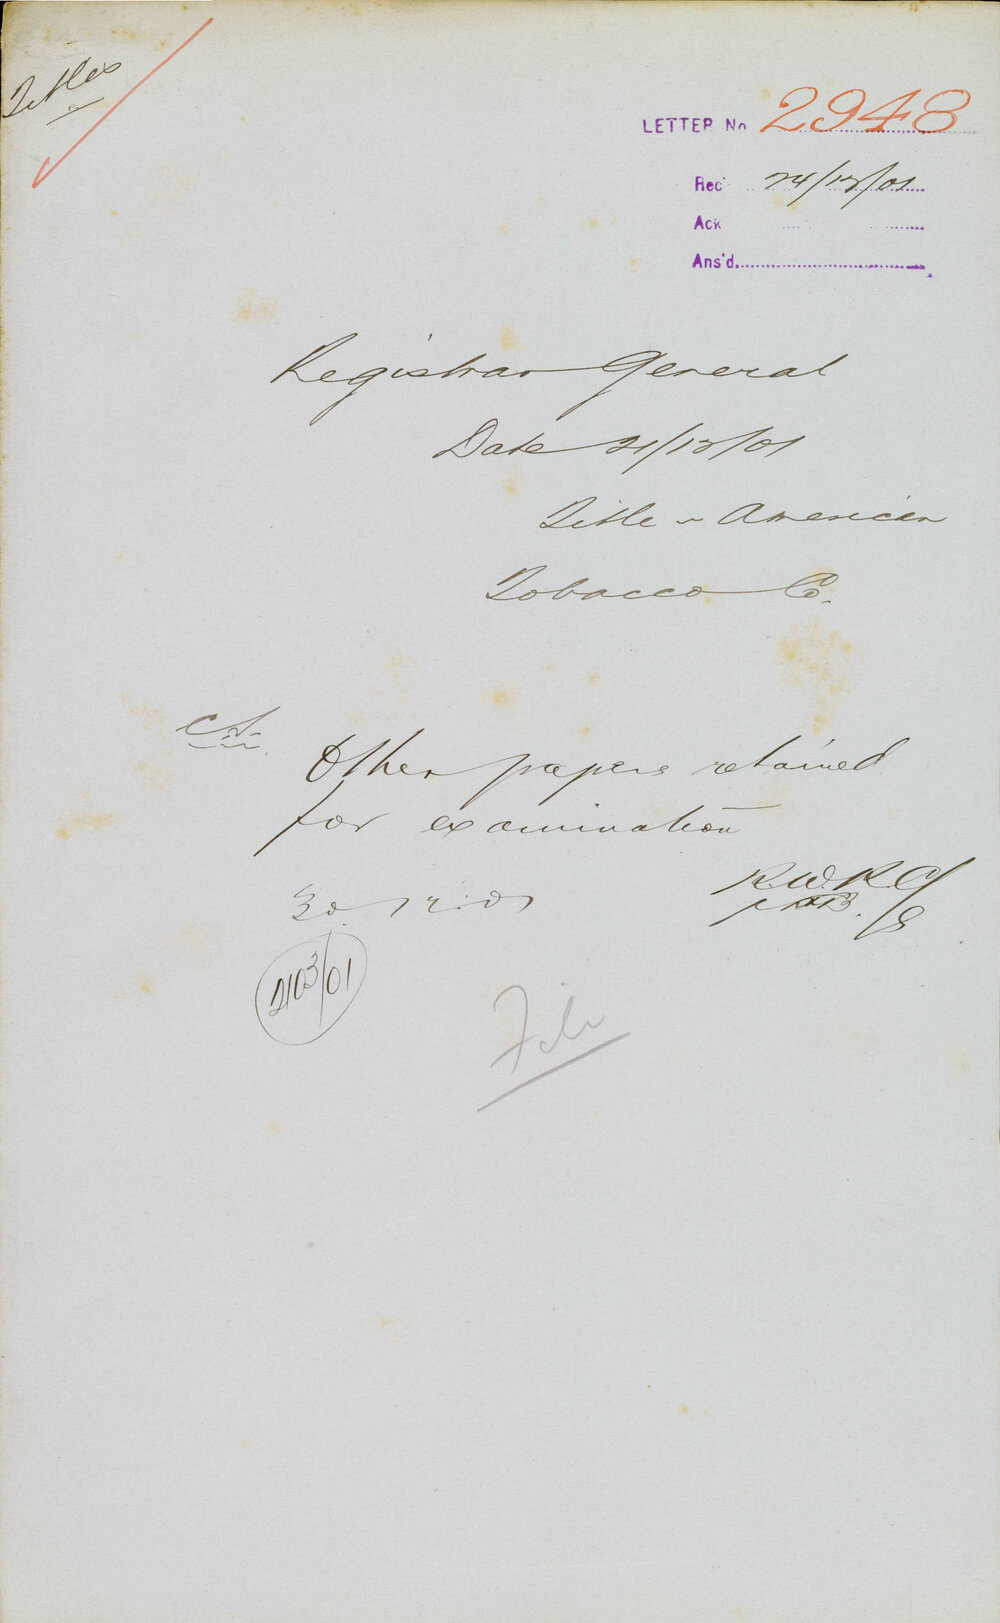 Titles
LETTER No 2948
Rec' 24/12/01
Ack
Ans'd
Registrar General
Date 21/12/01
Title ~ American
Tobacco Co.
Other papers retained
for examination
30.12.01
2103/01
File